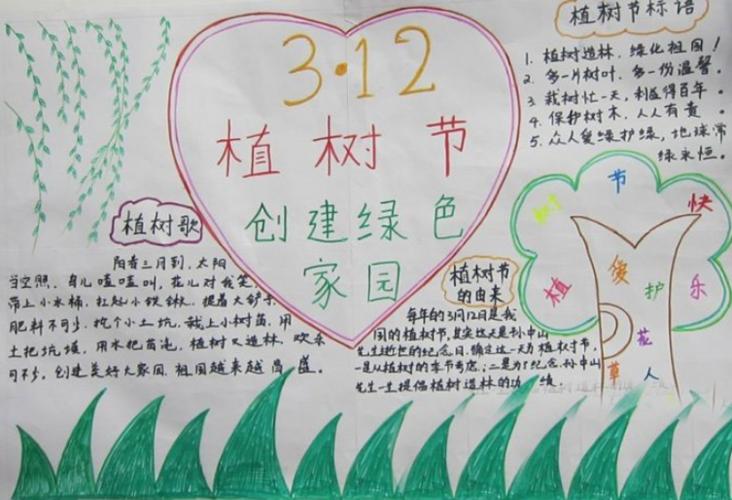 3·12
植树节
创建绿色
家园
植树节标语
1. 植树造林,绿化祖国!
2. 多一片树叶,多一份温馨。
3. 栽树忙一天,利益得百年。
4. 保护树木,人人有责。
5. 众人爱绿护绿,地球常
绿永恒。
植树歌
阳春三月到,太阳
当空照,鸟儿喳喳叫,花儿对我笑
带上小水桶,扛起小铁锹,提着大铲子
肥料不可少,挖个小土坑,栽上小树苗,用
土把坑填,用水把苗浇,植树又造林,欢乐
可不少,创建美好大家园,祖国越来越昌盛。
植树节
的由来
每年的3月12日是我
国的植树节,其实这天是孙中山
先生逝世的纪念日。确定这一天为植树节,
一是从植树的季节考虑;二是为了纪念孙中山
先生一生提倡植树造林的功绩
植树节快乐
爱护花草人